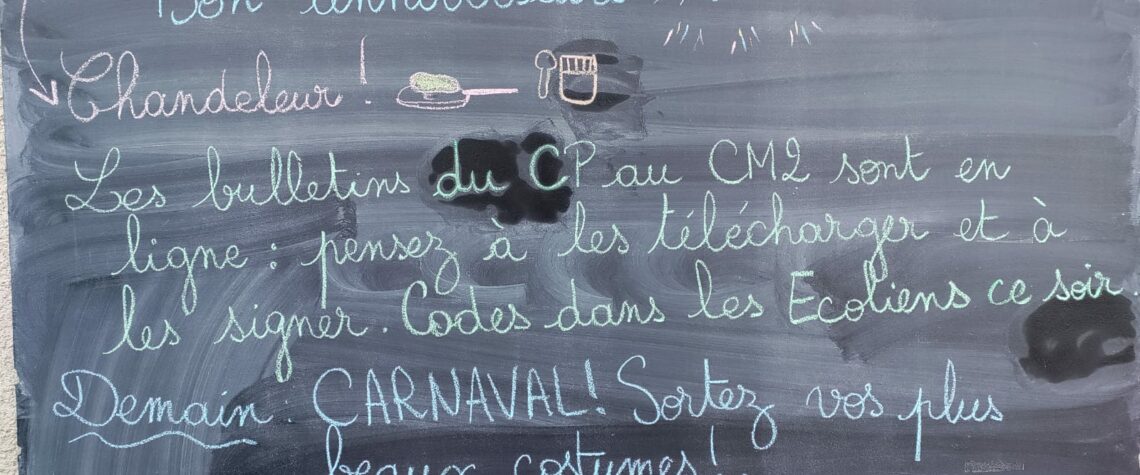 Bon anniversaire
Chandeleur !
Les bulletins du CP au CM2 sont en
ligne : pensez à les télécharger et à
les signer. Codes dans les Ecoliens ce soir
Demain : CARNAVAL! Sortez vos plus
beaux costumes!